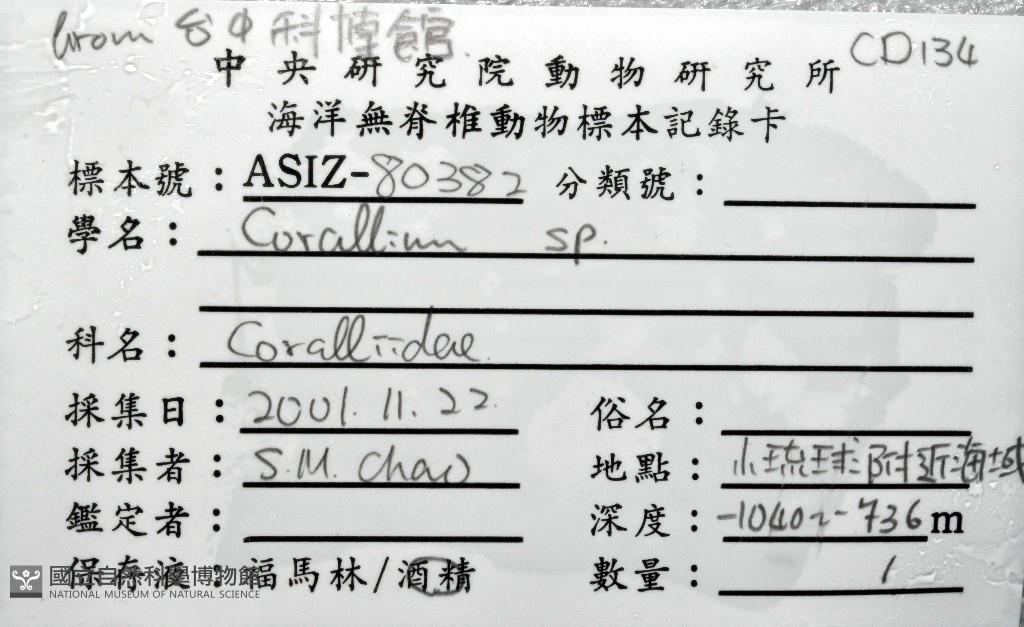 from 台中科博館 CD134
中央研究院動物研究所
海洋無脊椎動物標本記錄卡
標本號：ASIZ-80382 分類號：
學名：Corallium sp.
科名：Coralliidae
採集日：2001.11.22. 俗名：
採集者：S.M. Chao 地點：小琉球附近海域
鑑定者： 深度：-1040~-736m
保存液：福馬林/酒精 數量：1
國立自然科學博物館
NATIONAL MUSEUM OF NATURAL SCIENCE